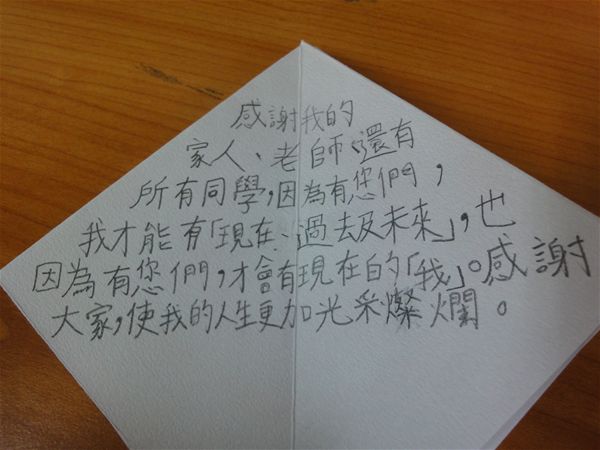 感謝我的
家人、老師、還有
所有同學,因為有您們,
我才能有「現在、過去及未來」,也
因為有您們,才會有現在的「我」。感謝
大家,使我的人生更加光采燦爛。